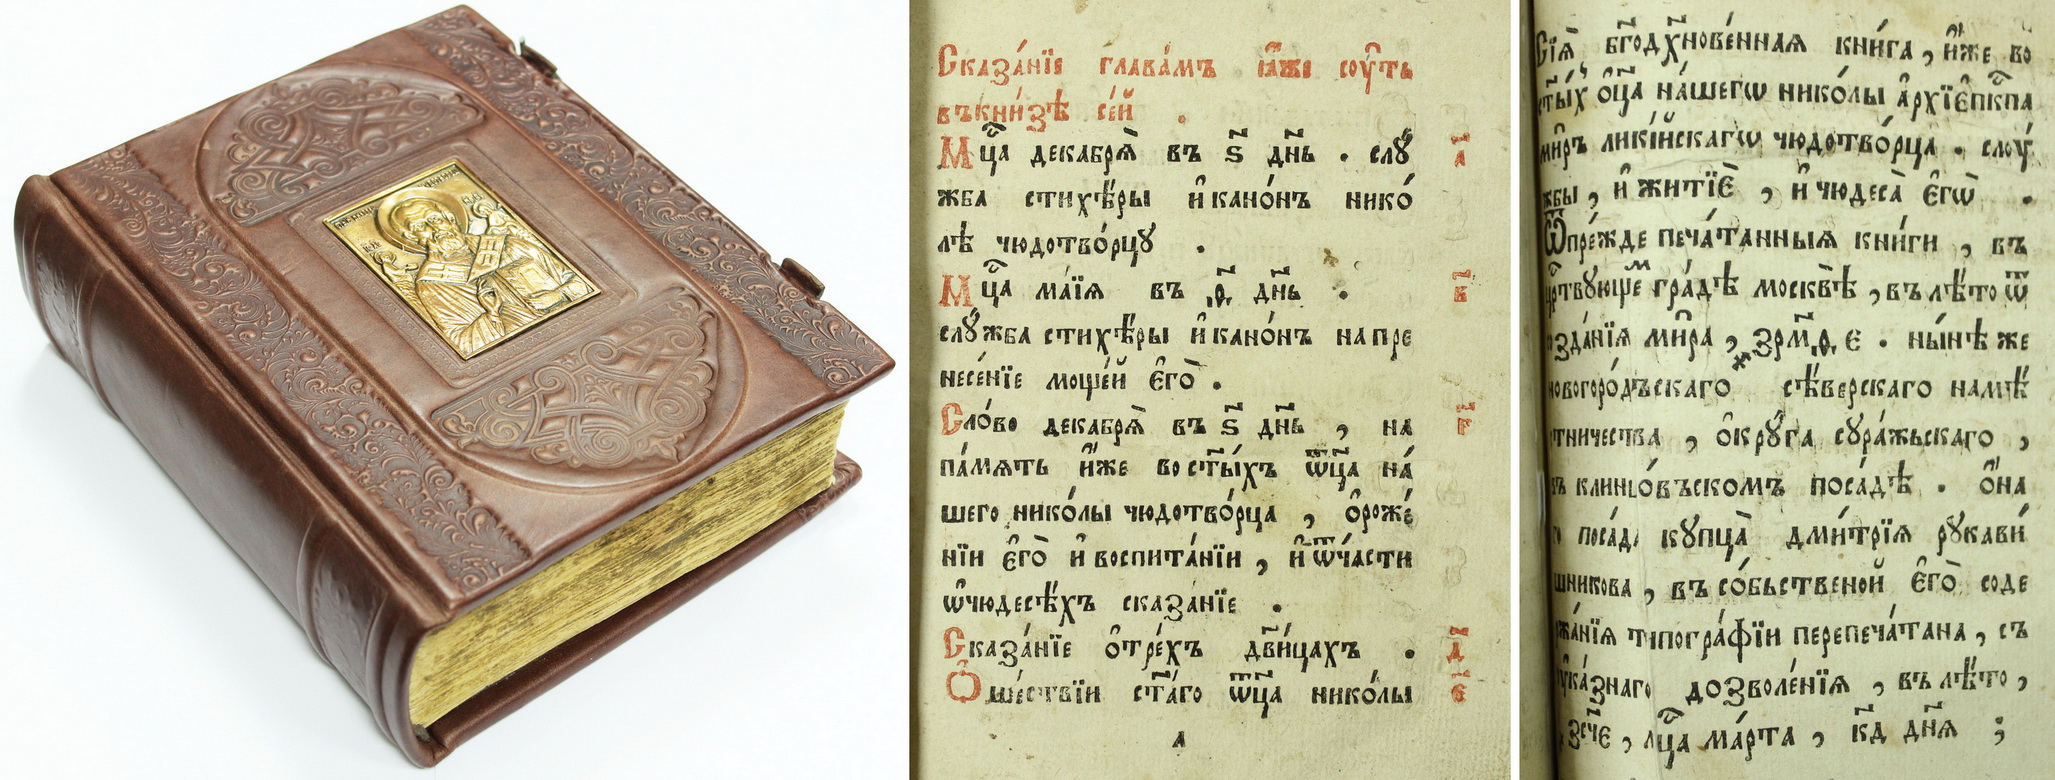 Сказа́нїе глава́мъ ꙗ҆́же сꙋ́ть
въкни́зѣ се́й .
Мцⷭ҇а декабрѧ̀ въ ѕ҃ днь . слꙋ́
жба стихѣ́ры и҆кано́нъ нико́
лѣ чюдотво́рцꙋ .
а҃
Мцⷭ҇а ма́їѧ въ ѳ҃ днь .
слꙋ́жба стихѣ́ры и҆кано́нъ напре
несе́нїе моще́й є҆гѡ̀ .
в҃
Сло́во декабрѧ̀ въ ѕ҃ днь , на
па́мѧть и҆́же во ст҃ы́хъ ѿц҃а на́
шего нико́лы чюдотво́рца , ѻ҆роже́
нїи є҆го̀ и҆воспита́нїи , и҆ѿча́сти
ѡ҆чюдесѣ́хъ сказа́нїе .
г҃
Сказа́нїе ѻ҆тре́хъ дв҃и́цахъ .
д҃
Ѻ҆ше́ствїи ст҃а́го ѿц҃а нико́лы
є҃
а
Сїѧ̀ бг҃одх҃нове́ннаѧ кни́га , и҆́же во
ст҃ы́х ѻ҆ц҃а на́шегѡ нико́лы а҆рхїє҆пкⷭ҇па
ми̑ръ ликі́йскагѡ чюдотво́рца . слꙋ́
жбы , и҆житїѐ , и҆чюдеса̀ є҆гѡ̀ .
Ѿпре́жде печа́танныѧ кни́ги , въ
црⷭ҇твꙋющемъ гра́дѣ москвѣ̀ , въ лѣ́то ѿ
созда́нїѧ ми́ра , ҂зрм҃ѳ є . ны́нѣ же
новогоро́дъскаго сѣ́верскаго намѣ́
стничества , ѻ҆крꙋ́га сꙋра́жьскаго ,
въ клинцо́въскомъ поса́дѣ . ѻ҆на́
го поса́да кꙋпца̀ дми́трїѧ рꙋкави́
шникова , въ со́бьственой є҆го̀ соде
ржа́нїѧ типогра́фїи перепеча́тана , съ
ᲂу҆ка́знаго дозволе́нїѧ , въ лѣ́то ,
҂зсч҃є , мцⷭ҇а ма́рта , кд҃ днѧ̀ ;